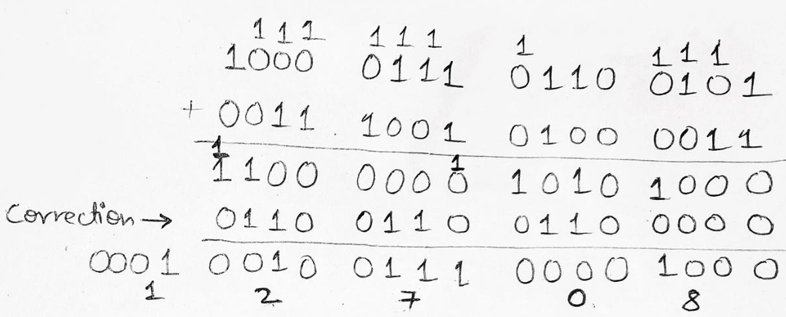 1 1 1 1 1 1 1 1 1 1
1000 0111 0110 0101
+ 0011 1001 0100 0011
1 1
1100 0000 1010 1000
Correction → 0110 0110 0110 0000
0001 0010 0111 0000 1000
1 2 7 0 8